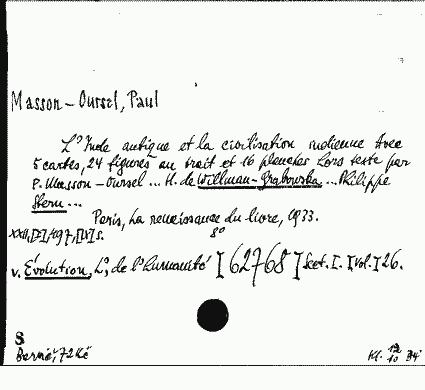 Masson-Oursel, Paul
L'Inde antique et la civilisation indienne Avec
5 cartes, 24 figures au trait et 16 planches hors texte par
P. Masson-Oursel ... H. de Willman-Grabowska ... Philippe
Stern ...
Paris, La renaissance du livre, 1933.
XXII, [I], 497, [IV] s. 8°
v. Évolution, L', de l'humanité [62768] Sect. I. [vol.] 26.
S